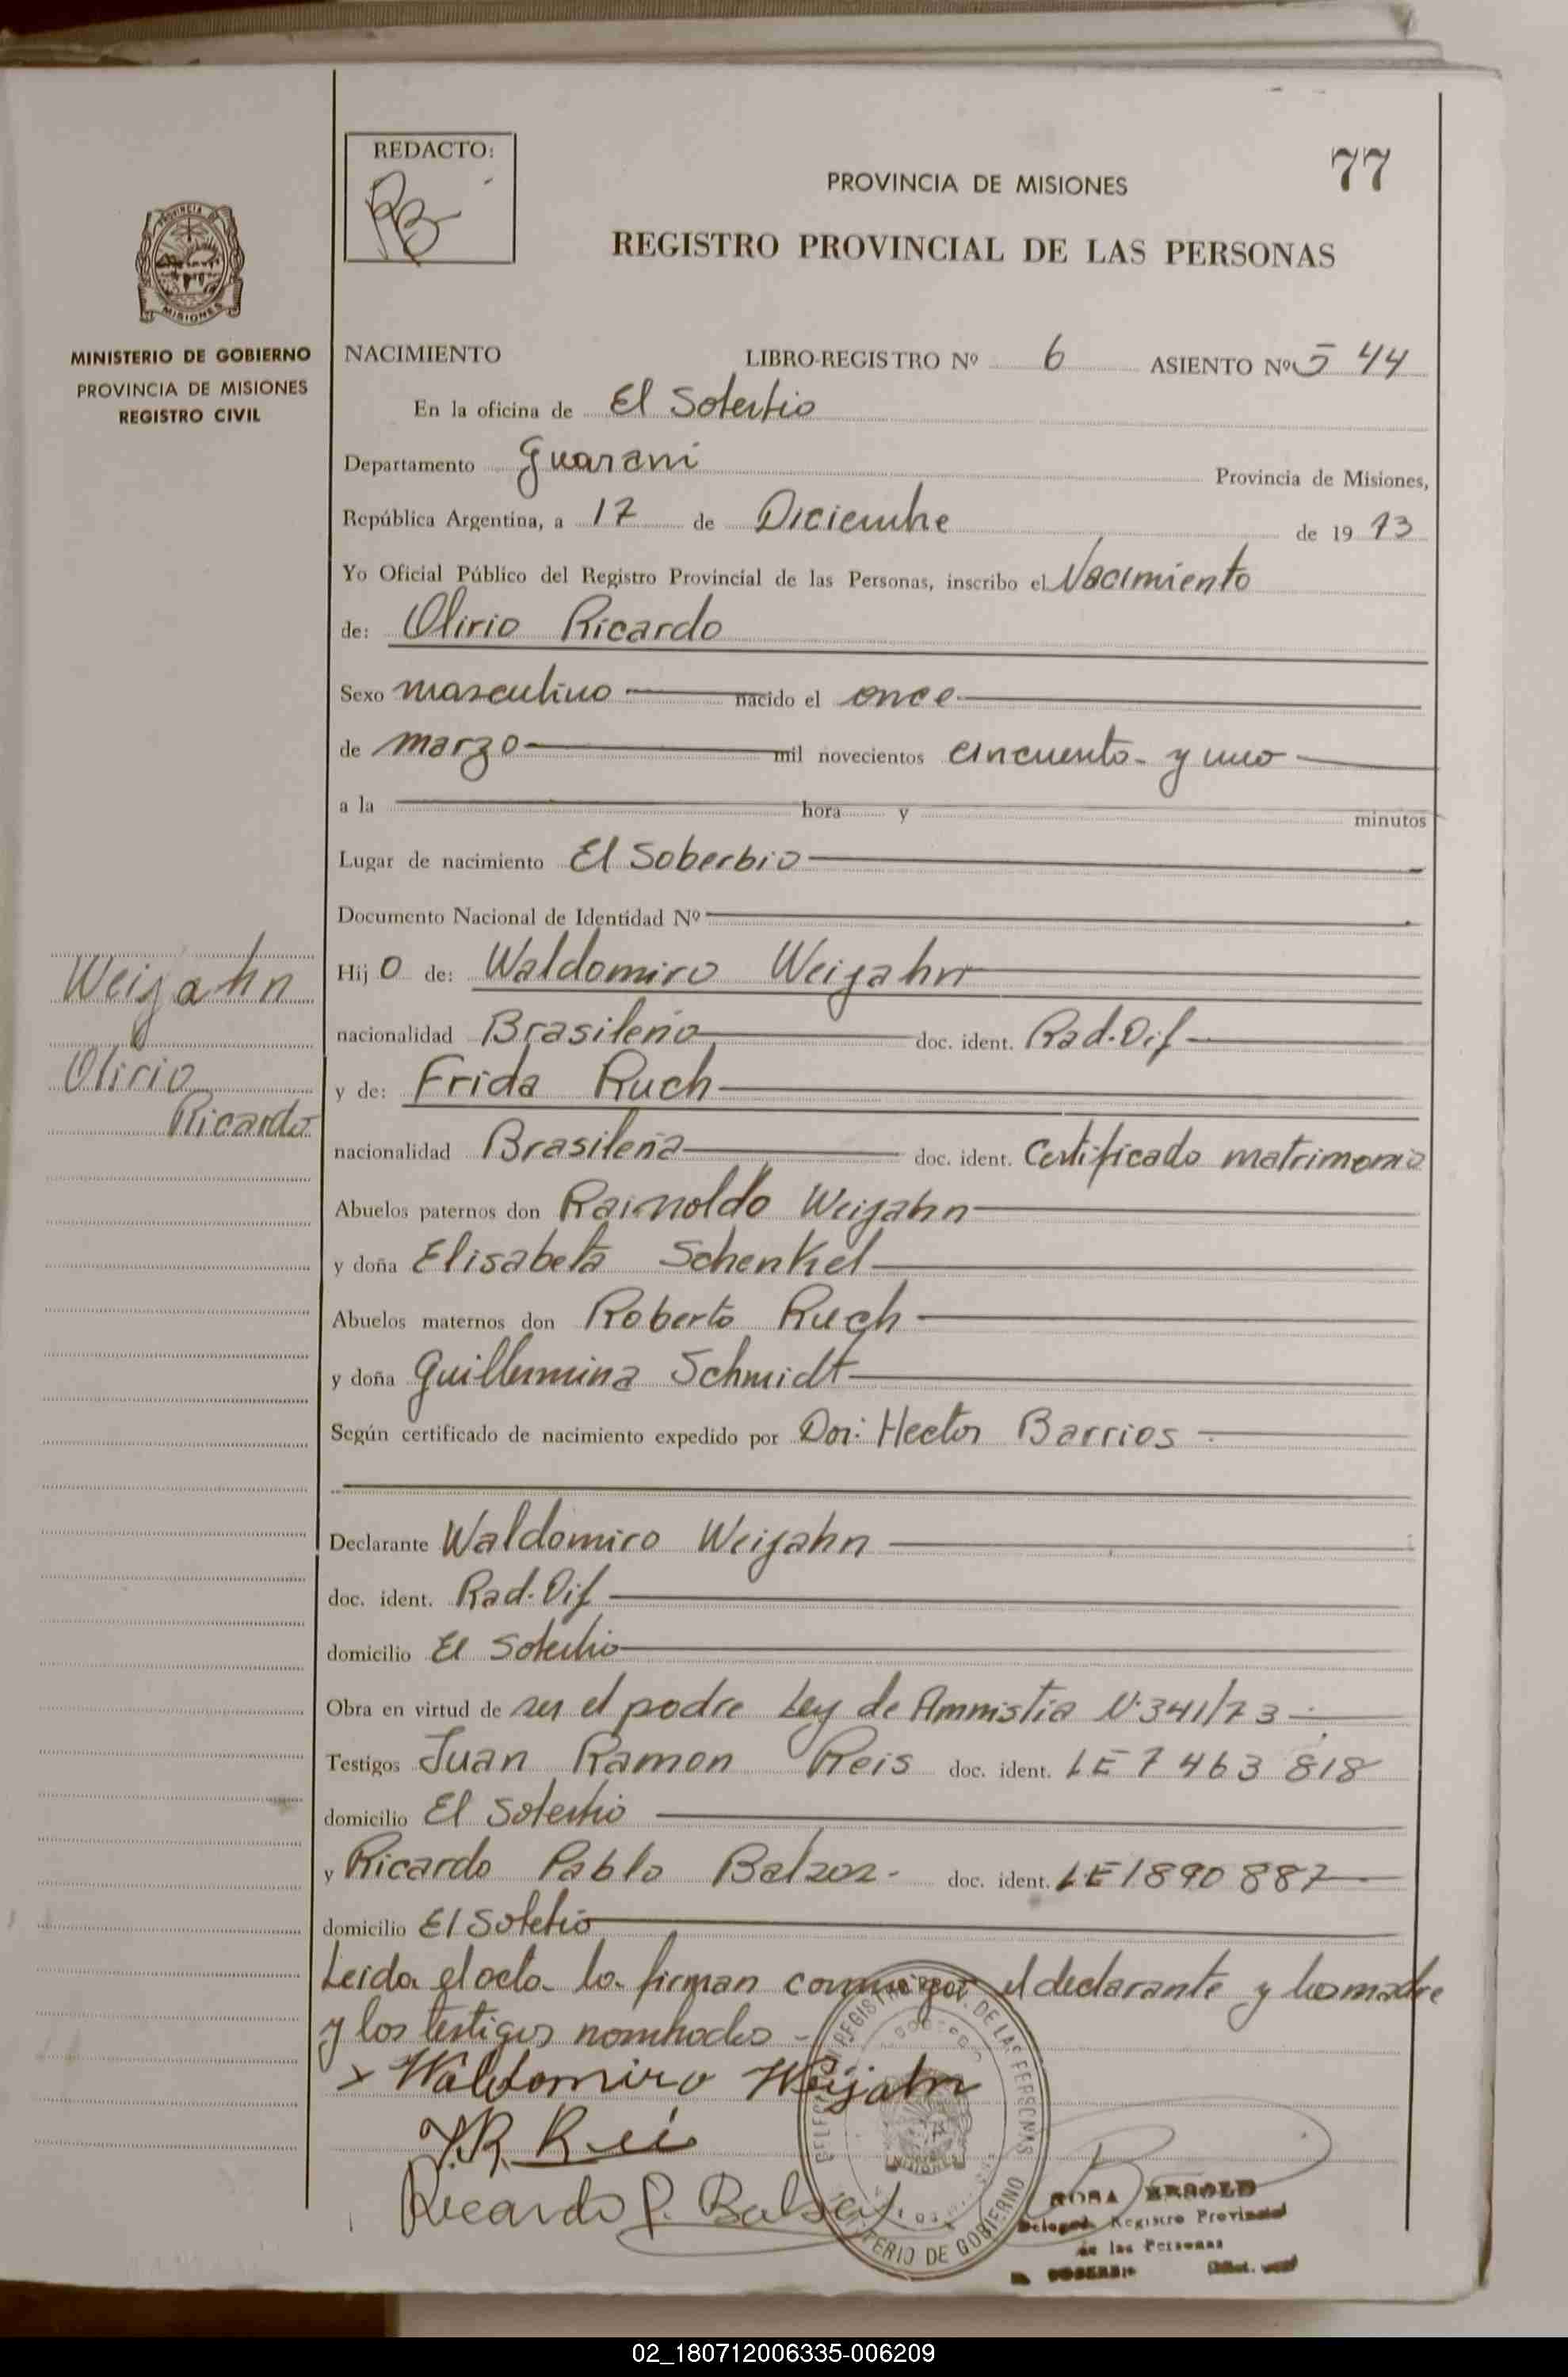 77
REDACTO:
RB
PROVINCIA DE MISIONES
REGISTRO PROVINCIAL DE LAS PERSONAS
PROVINCIA DE
MISIONES
MINISTERIO DE GOBIERNO
PROVINCIA DE MISIONES
REGISTRO CIVIL
NACIMIENTO LIBRO-REGISTRO Nº 6 ASIENTO Nº 544
En la oficina de El Soberbio
Departamento Guarani Provincia de Misiones,
República Argentina, a 17 de Diciembre de 19 73
Yo Oficial Público del Registro Provincial de las Personas, inscribo el Nacimiento
de: Olirio Ricardo
Sexo masculino nacido el once
de marzo mil novecientos cincuenta y uno
a la hora y minutos
Lugar de nacimiento El Soberbio
Documento Nacional de Identidad Nº
Weijahn
Olirio
Ricardo
Hijo de: Waldomiro Weijahn
nacionalidad Brasileño doc. ident. Rad. Dif
y de: Frida Ruch
nacionalidad Brasileña doc. ident. Certificado matrimonio
Abuelos paternos don Rainoldo Weijahn
y doña Elisabeta Schenkel
Abuelos maternos don Roberto Ruch
y doña Guillermina Schmidt
Según certificado de nacimiento expedido por Dor: Hector Barrios
Declarante Waldomiro Weijahn
doc. ident. Rad. Dif
domicilio El Soberbio
Obra en virtud de ser el padre Ley de Amnistia N.341/73
Testigos Juan Ramon Reis doc. ident. LE 7 463 818
domicilio El Soberbio
y Ricardo Pablo Balzor doc. ident. LE 1890 887
domicilio El Soberbio
Leida el acta la firman conmigo el declarante y la madre
y los testigos nombrados
x Waldomiro Weijahn
J.R. Rei
Ricardo P. Balzor
REGISTRO DE LAS PERSONAS
MISIONES
MINISTERIO DE GOBIERNO
ROSA
Registro Provincial
de las Personas
EL SOBERBIO
02_180712006335-006209